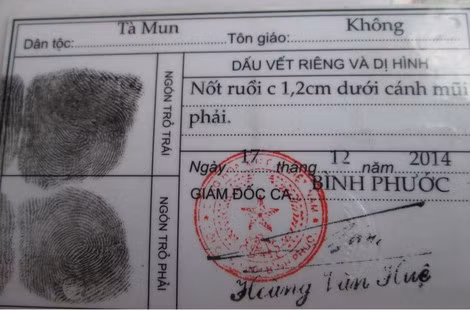 Dân tộc: Tà Mun Tôn giáo: Không
DẤU VẾT RIÊNG VÀ DỊ HÌNH
Nốt ruồi c 1,2cm dưới cánh mũi
phải.
NGÓN TRỎ TRÁI
Ngày 17 tháng 12 năm 2014
GIÁM ĐỐC CA BÌNH PHƯỚC
NGÓN TRỎ PHẢI
Hoàng Văn Huệ